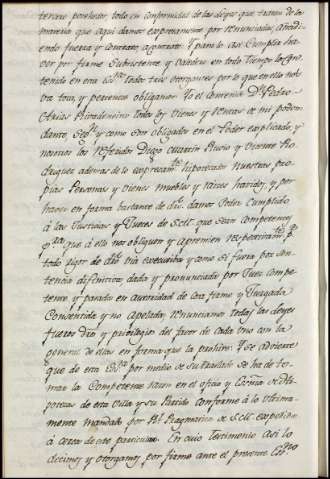 tercero poseedor, todo en conformidad de las Leyes que tratan de la
materia que aqui damos expresamente por renunciadas, añadi-
endo fuerza y contrato, a contrato: Y para lo asi Cumplir ha-
ver por firme Subsistente y valedero en todo Tiempo lo Con-
tenido en esta todos tres otorgantes por lo que en ella nos
va toca, y pertenece obligamos Yo el Dn Pedro
Arias todos los vienes y Rentas de mi poder
dante, segn y como son obligados en el Poder explicado, y
nosotros los referidos Diego Martin Rubio y Vicente Ro-
driguez ademas de lo expresamte hipotecado nuestras pro-
pias Personas y vienes muebles y raices havidos, y por
haver en forma bastante de dro, damos Poder Cumplido
a las Justicias y Jueces de S.M. que sean competentes
pra que a ello nos obliguen y apremien respectivamte pr
todo rigor de dro via executiva y como si fuera por sen-
tencia difinitiva dada y pronunciada por Juez Compe-
tente y pasada en autoridad de cosa firme y Juzgada
Consentida y no apelada; renunciamos todas las Leyes
fueros dro y privilegios del favor de cada Uno con la
general de ellas en forma que la prohive. Y se advierte
que de esta por medio de su traslado se ha de to-
mar la Competente razon en el oficio y de Hi-
potecas de esta Villa y su Partido conforme à lo Ultima-
mente mandado por Rl Pragmatica de S.M. expedida
à cerca de este particular. En cuio Testimonio asi lo
decimos y otorgamos por firme ante el presente